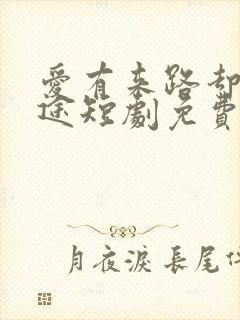 愛有来路却
途短劇免費
月夜淚 長尾